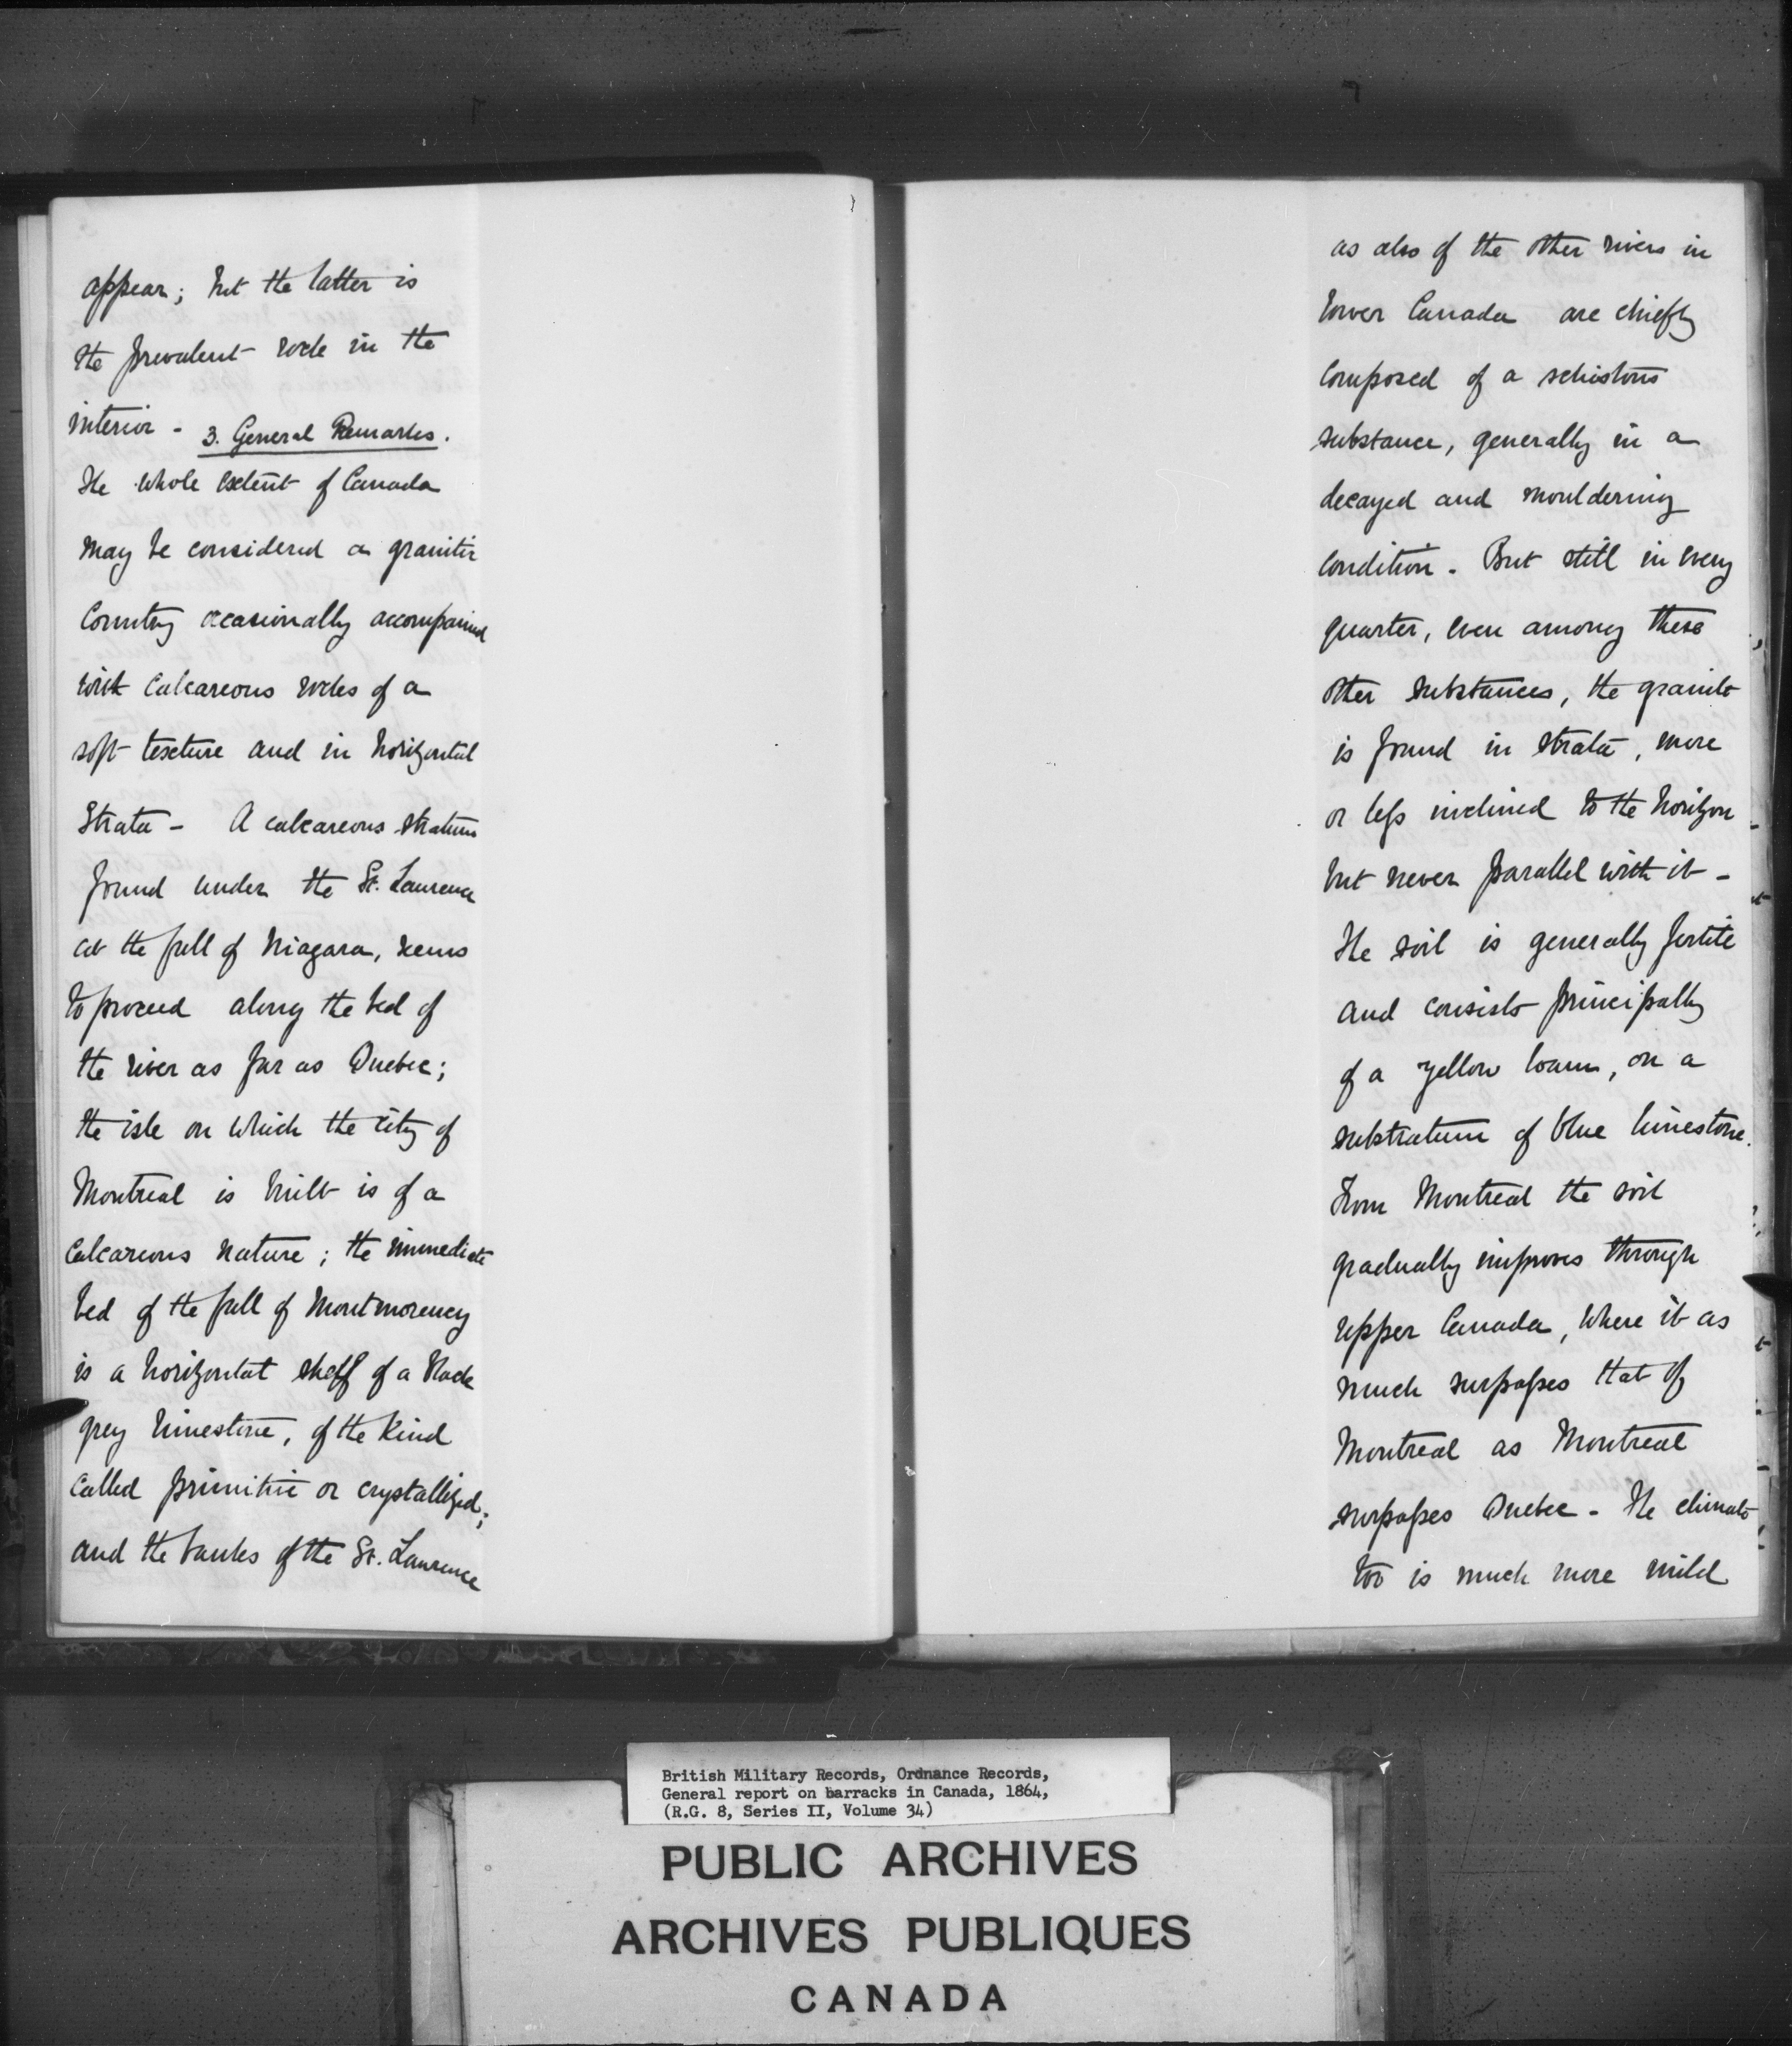 appear; but the latter is
the prevalent rock in the
interior - 3. General Remarks.
The whole extent of Canada
may be considered a granitic
Country occasionally accompanied
with calcareous rocks of a
soft texture and in horizontal
Strata - A calcareous stratum
found under the St. Laurence
at the fall of Niagara, seems
to proceed along the bed of
the river as far as Quebec;
the isle on which the city of
Montreal is built is of a
Calcareous nature; the immediate
bed of the fall of Montmorency
is a horizontal shelf of a black
grey limestone, of the kind
called primitive or crystallized;
and the banks of the St. Laurence
as also of the other rivers in
lower Canada are chiefly
composed of a schistous
substance, generally in a
decayed and mouldering
condition. But still in every
quarter, even among these
other substances, the granite
is found in strata, more
or less inclined to the horizon
but never parallel with it -
The soil is generally fertile
and consists principally
of a yellow loam, on a
substratum of blue limestone.
From Montreal the soil
gradually improves through
upper Canada, where it as
much surpasses that of
Montreal as Montreal
surpasses Quebec - The climate
too is much more mild
British Military Records, Ordnance Records,
General report on barracks in Canada, 1864,
(R.G. 8, Series II, Volume 34)
PUBLIC ARCHIVES
ARCHIVES PUBLIQUES
CANADA